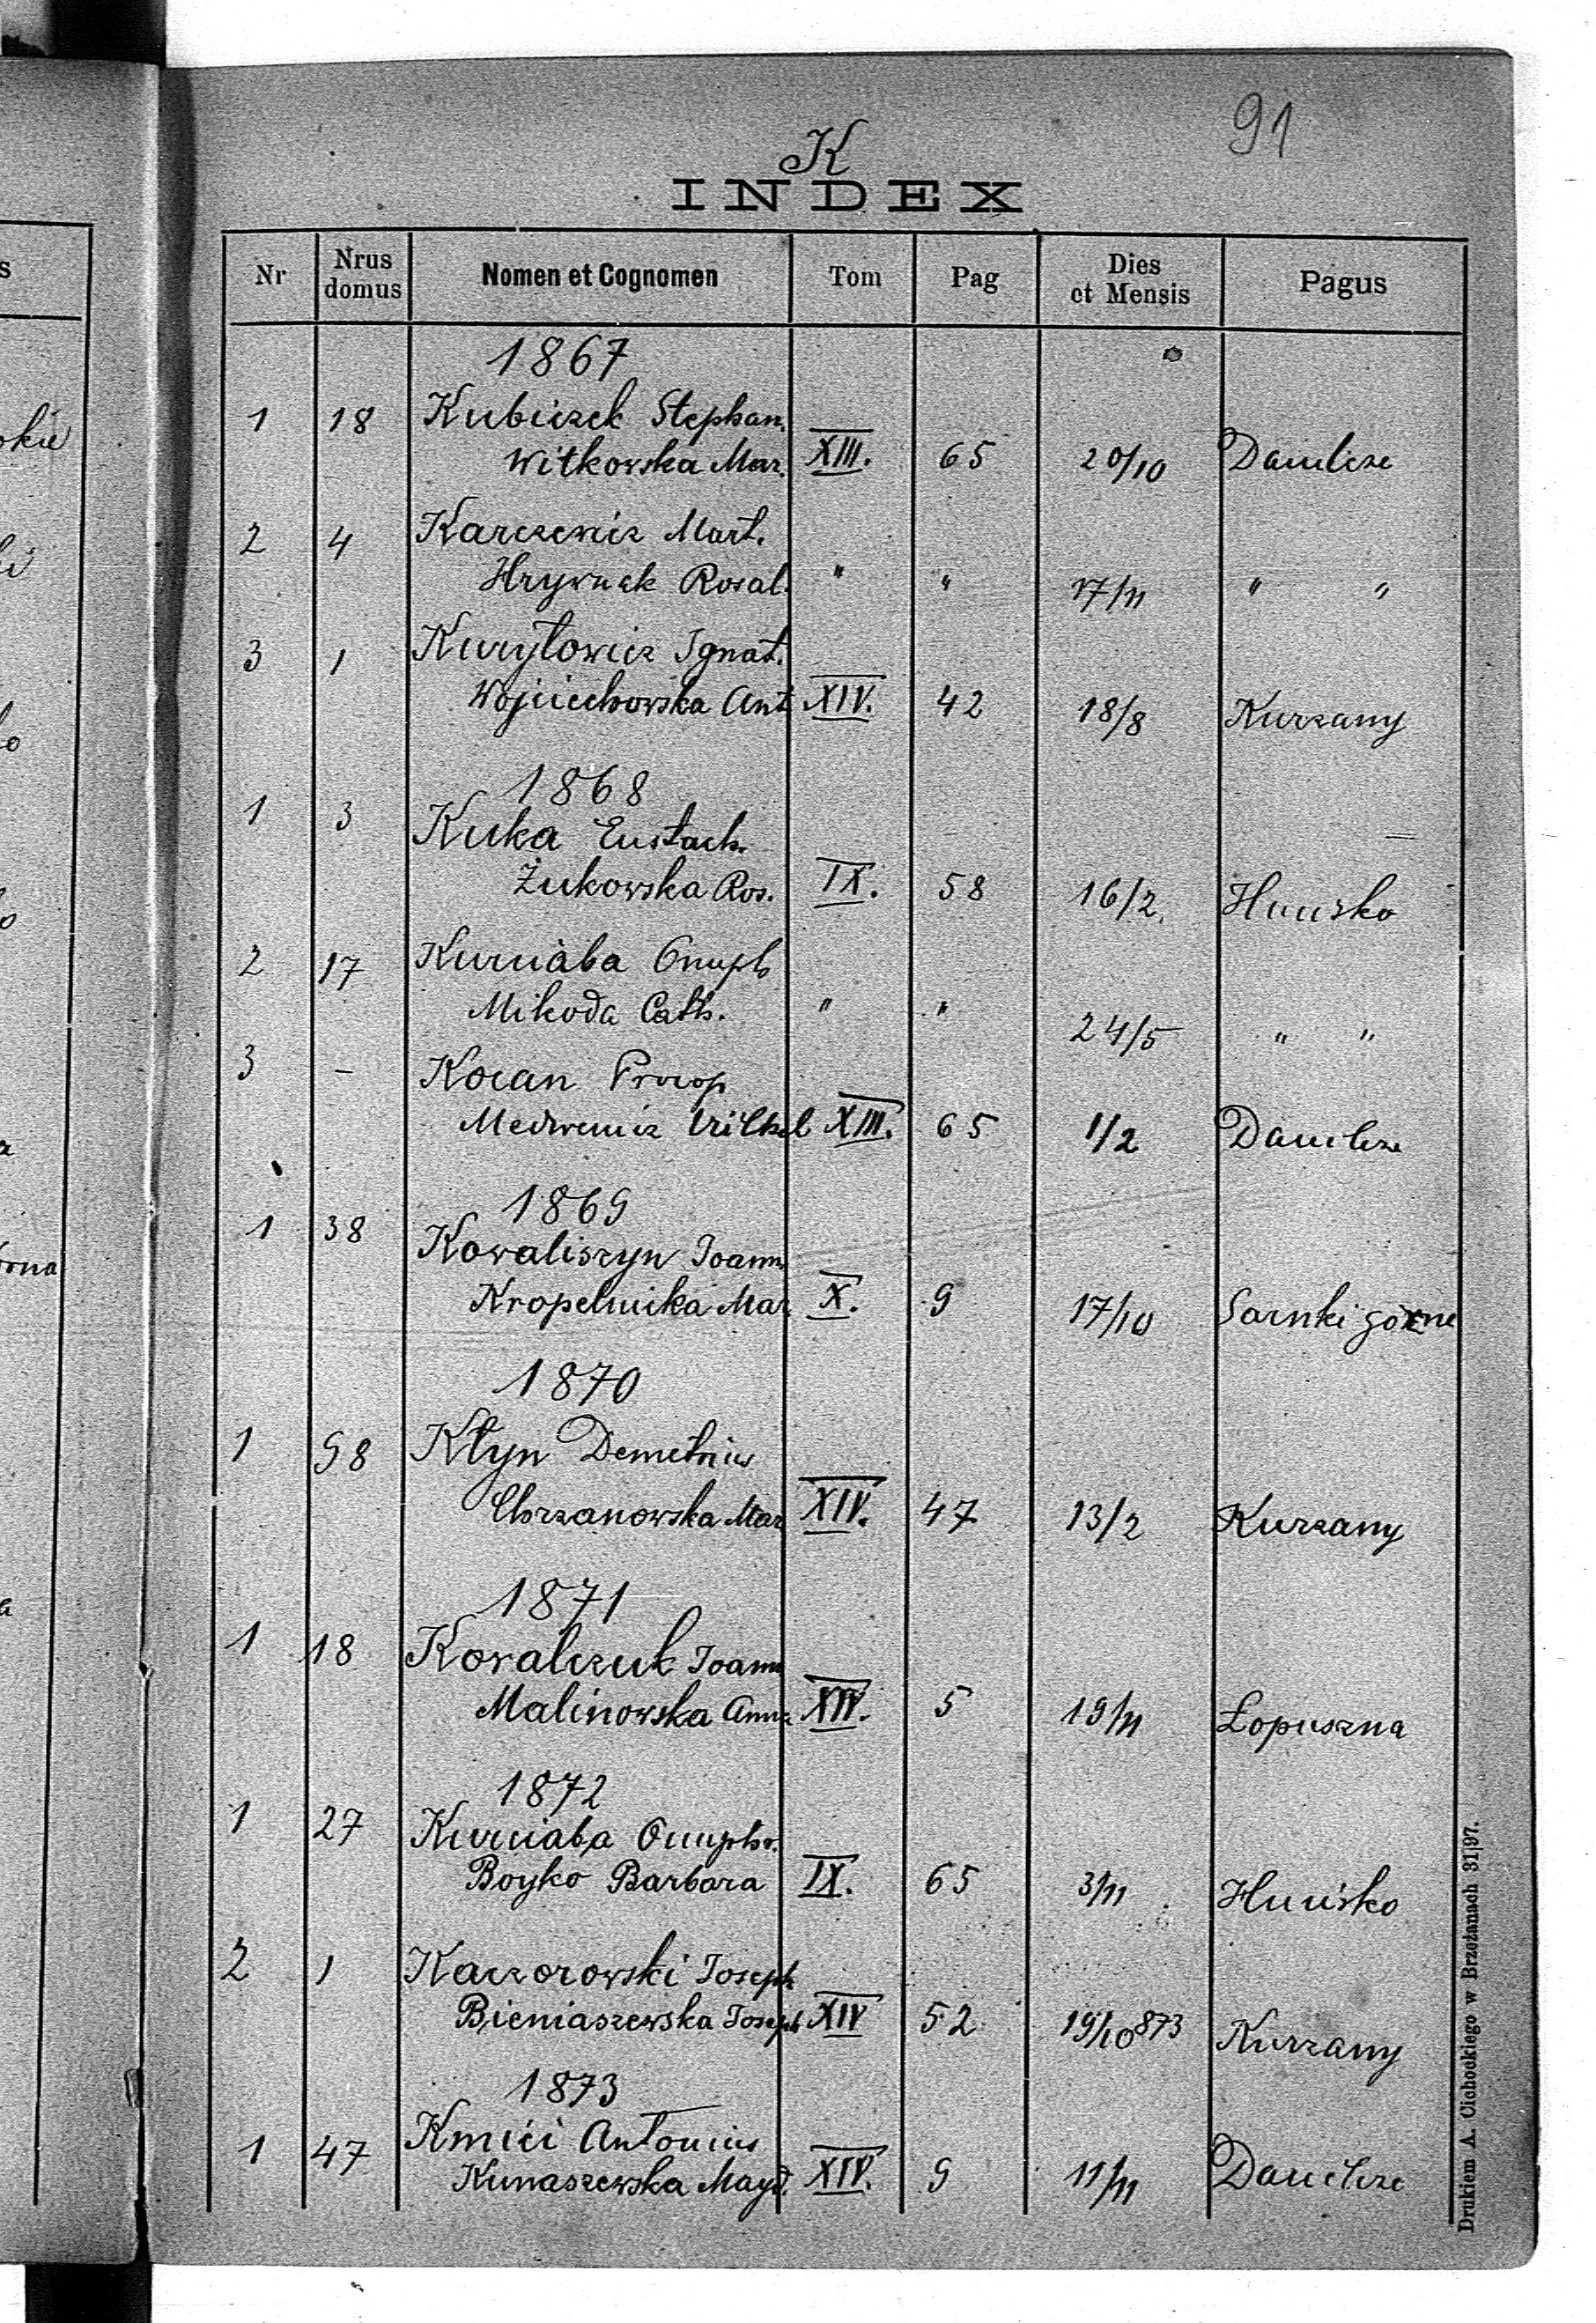 91
K
INDEX
Nr Nrus domus Nomen et Cognomen Tom Pag Dies et Mensis Pagus
1867
1 18 Kubiczek Stephan.
Witkowska Mar. XIII. 65 20/10 Danilcze
2 4 Karczewicz Mart.
Hrywnak Rosal. " " 17/11 " "
3 1 Kuryłowicz Ignat.
Wojciechowska Ant. XIV. 42 18/8 Kurzany
1868
1 3 Kuka Eustach.
Żukowska Ros. IX. 58 16/2. Hucisko
2 17 Kurniaba Onuph
Mikoda Cath. " " 24/5 " "
3 - Kocan Procop
XIII. 65 1/2 Danilcze
1869
1 38 Kowaliszyn Joann.
Kropelnicka Mar X. 9 17/10 Sarnki górne
1870
1 98 Kłyn Demetrius
Chrzanowska Mar XIV. 47 13/2 Kurzany
1871
1 18 Kowalczuk Joann
Malinowska Anna XIV. 5 19/11 Łopuszna
1872
1 27 Kurniaba Onuphr.
Boyko Barbara IX. 65 3/11 Hucisko
2 1 Kaczorowski Joseph
Bieniaszewska Joseph XIV 52 19/10 873 Kurzany
1873
1 47 Kmić Antonius
Kunaszewska Magd. XIV. 9 11/11 Danilcze
Drukiem A. Cichockiego w Brzeżanach 31|97.